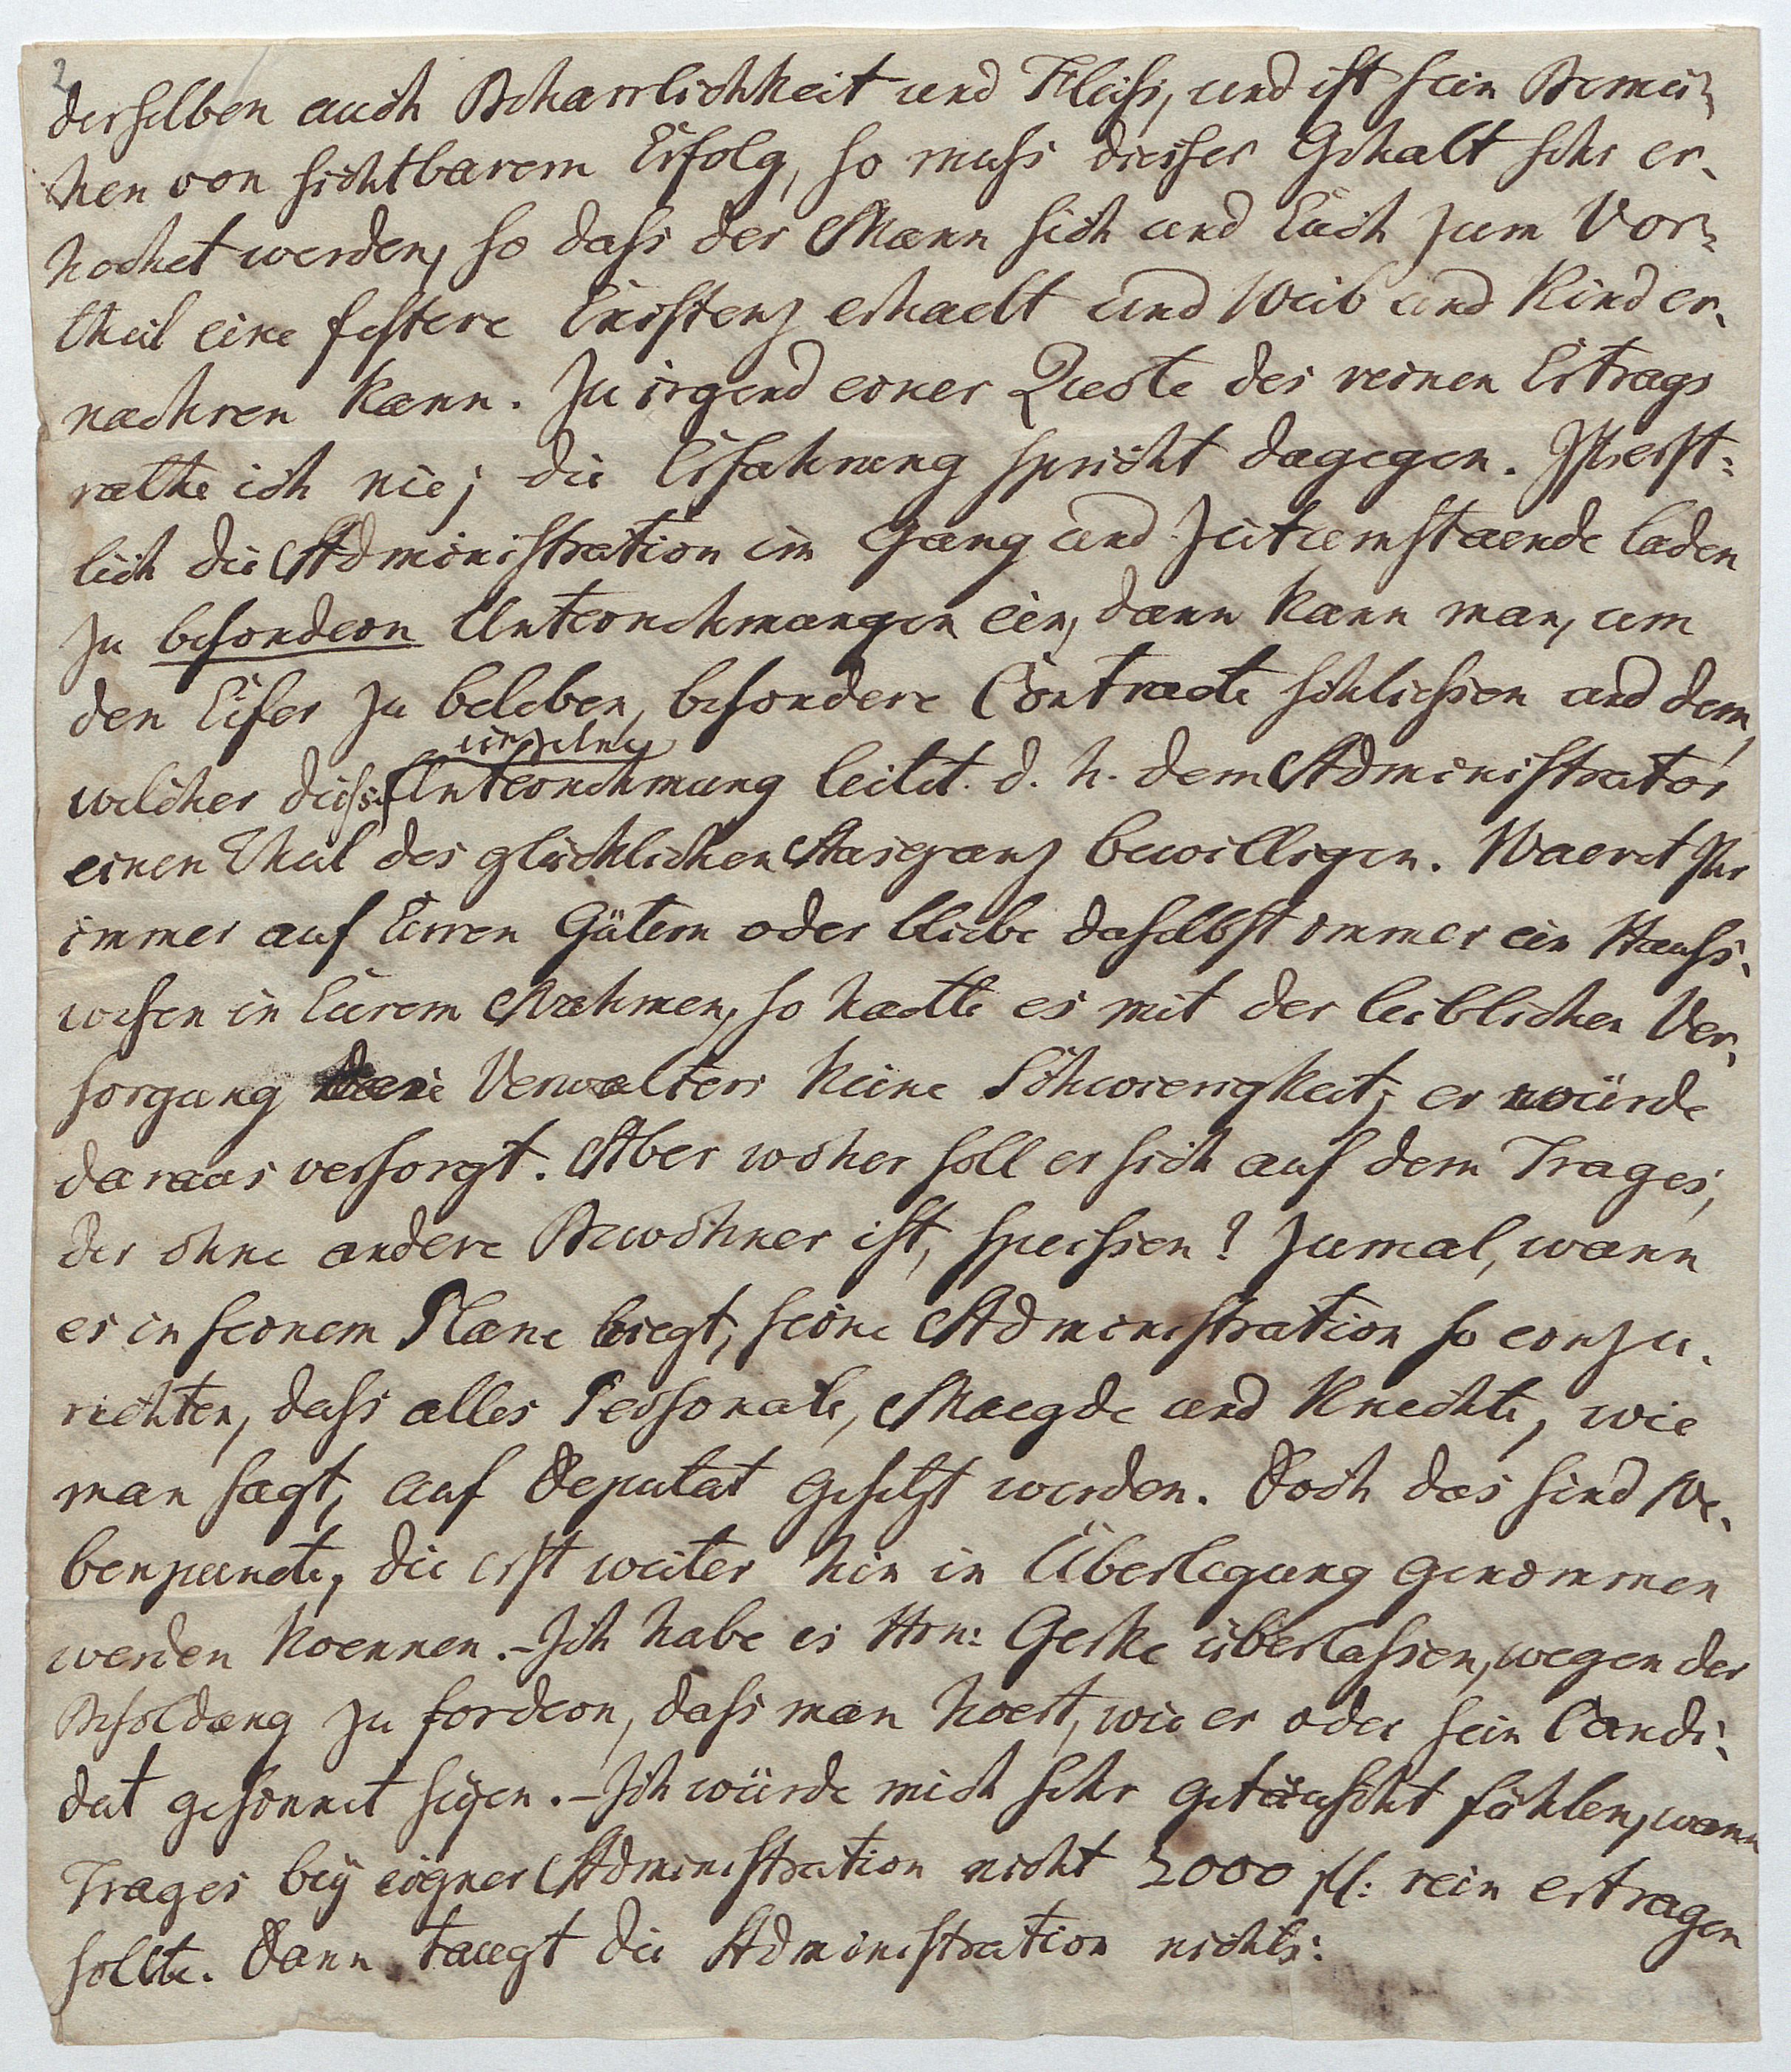 2
derselben auch Beharrlichkeit und Fleiss, und ist sein Bemü-
hen von sichtbarem Erfolg, so muss dieser Gehalt sehr er-
hoehet werden, so dass der Mann sich und Euch zum Vor-
theil eine festere Existenz erhaelt und Weib und Kind er-
naehren kann. Zu irgend einer Quote des reinen Ertrags
rathe ich nie; die Erfahrung spricht dagegen. Ist erst-
lich die Administration im Gang und Zeitumstaende laden
zu besondern Unternehmungen ein, dann kann man, um
den Eifer zu beleben, besondere Contracte schliessen und dem,
einzelne
welcher diese Unternehmung leitet. d. h. dem Administrator
einen Theil des glücklichen Ausgangs bewilligen. Waeret Ihr
immer auf Euren Gütern oder bliebe daselbst immer ein Hauss-
wesen in Eurem Nahmen, so haette es mit der leiblichen Ver-
sorgung Verwalters keine Schwierigkeit; er würde
daraus versorgt. Aber woher soll er sich auf dem Trages,
der ohne andere Bewohner ist, speissen? Zumal, wann
es in seinem Plane liegt, seine Administration so einzu-
richten, dass alles Personale, Maegde und Knechte, wie
man sagt, auf Deputat gesetzt werden. Doch das sind Ne-
benpuncte, die erst weiter hin in Überlegung genommen
werden koennen. – Ich habe es Hrn: Gerke überlassen, wegen der
Besoldung zu fordern, dass man hoert, wie er oder sein Candi-
dat gesonnet seyen. – Ich würde mich sehr getäuscht fühlen, wann
Trages bey eigner Administration nicht 2000 fl: rein ertragen
sollte. Dann taugt die Administration nichts: